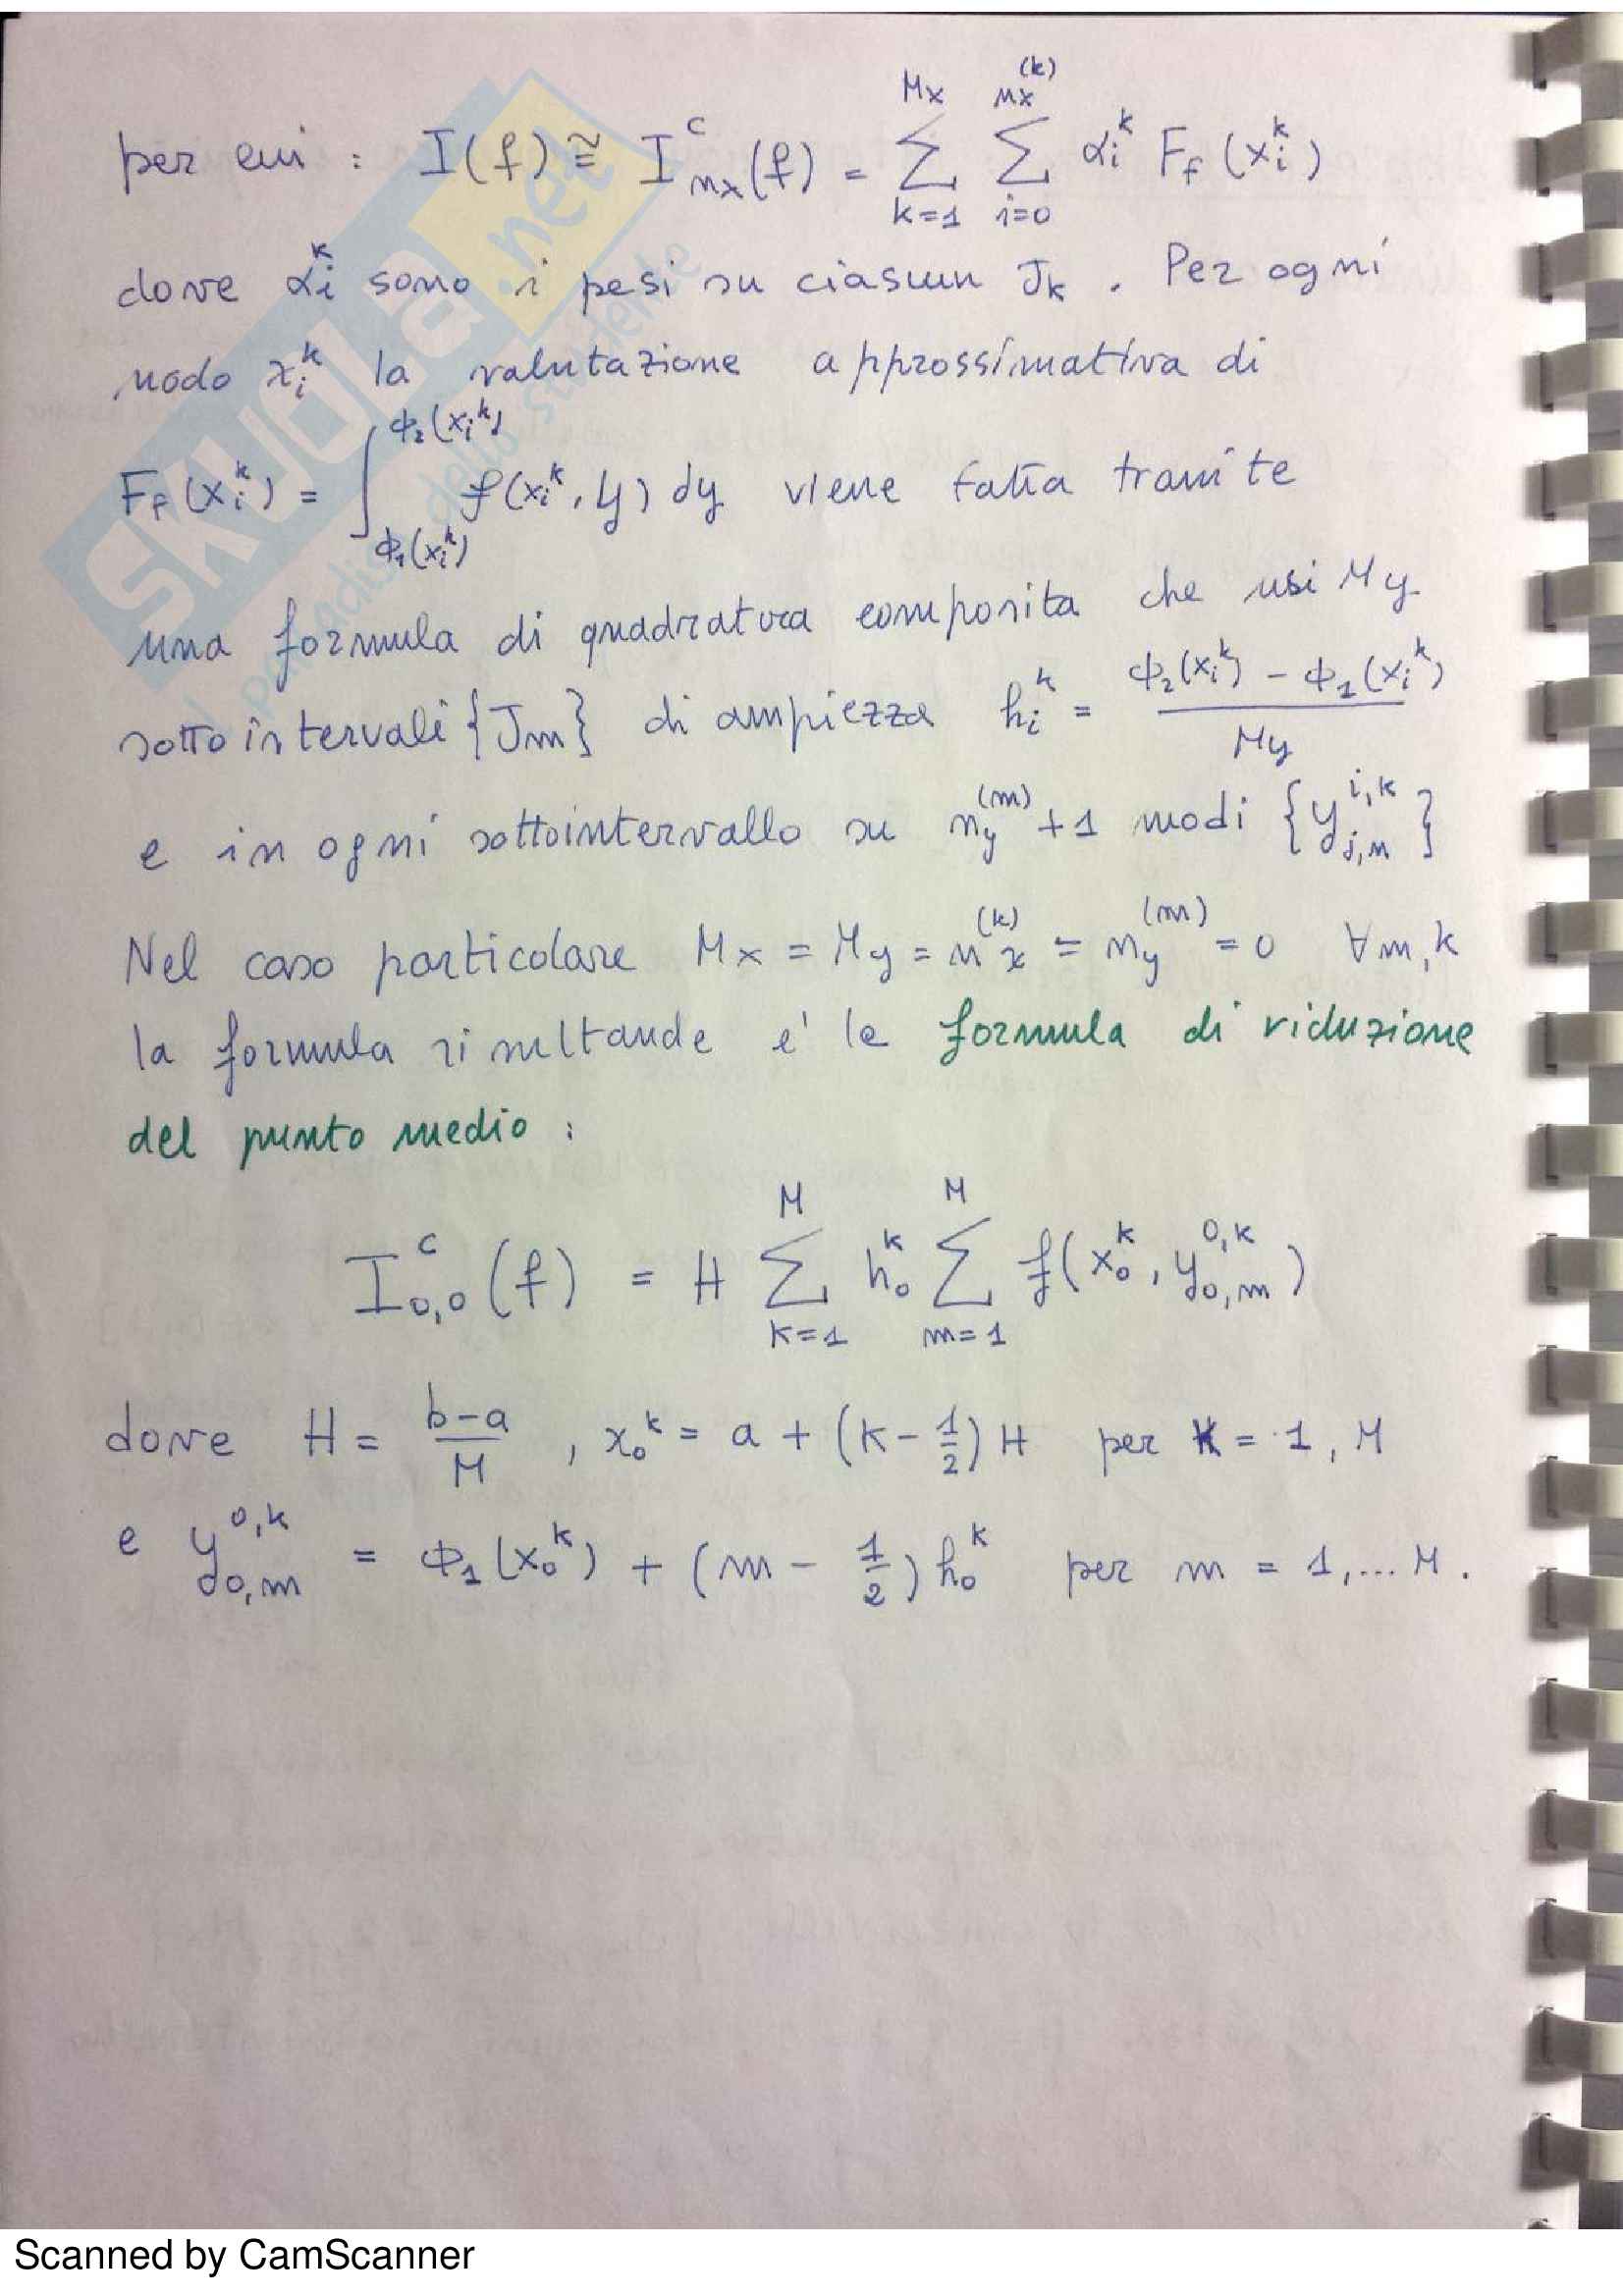 per cui : I(f) ≅ I^c_{nx}(f) = Σ_{k=1}^{Mx} Σ_{i=0}^{nx^{(k)}} α_i^k F_f(x_i^k)
dove α_i^k sono i pesi su ciascun J_k . Per ogni
nodo x_i^k la valutazione approssimativa di
F_f(x_i^k) = ∫_{ϕ_1(x_i^k)}^{ϕ_2(x_i^k)} f(x_i^k, y) dy viene fatta tramite
una formula di quadratura composita che usi My
sottointervali {J_m} di ampiezza h_i^k = (ϕ_2(x_i^k) - ϕ_1(x_i^k)) / My
e in ogni sottointervallo su n_y^{(m)} + 1 nodi {y_{j,m}^{i,k}}
Nel caso particolare Mx = My = n_x^{(k)} = n_y^{(m)} = 0 ∀m,k
la formula risultande e' la formula di riduzione
del punto medio :
I^c_{0,0}(f) = H Σ_{k=1}^{M} h_0^k Σ_{m=1}^{M} f(x_0^k, y_{0,m}^{0,k})
dove H = (b-a)/M , x_0^k = a + (k - 1/2) H per k = 1, M
e y_{0,m}^{0,k} = ϕ_1(x_0^k) + (m - 1/2) h_0^k per m = 1,... M.
SKUOLA.net
il paradiso dello studente
Scanned by CamScanner